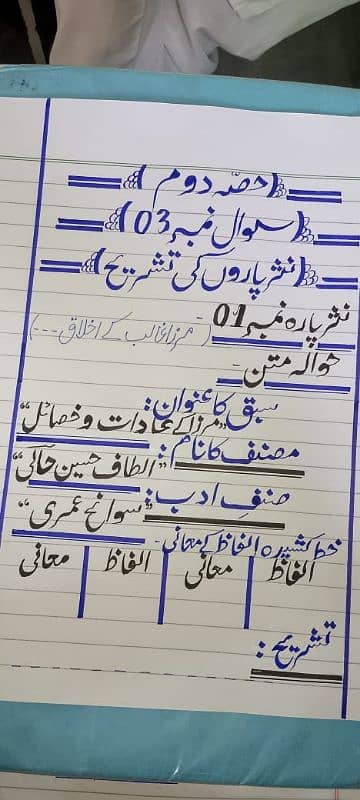 (حصّہ دوم)
(سوال نمبر 03)
(نثر پاروں کی تشریح)
نثر پارہ نمبر 01-
(مرزا غالب کے اخلاق ---)
حوالہ متن:-
سبق کا عنوان:
"مرزا کے عادات و خصائل"
مصنف کا نام:
"الطاف حسین حالی"
صنفِ ادب:
"سوانح عمری"
خط کشیدہ الفاظ کے معانی-
الفاظ معانی الفاظ معانی
تشریح: